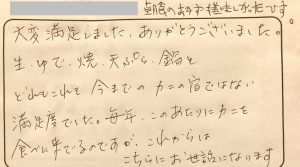 朝食のおかず種類もしかったです。
大変満足しました。ありがとうございました。
生・ゆで・焼・天ぷら・鍋と
どれもこれも今までのカニの宿ではない
満足度でした。毎年、このあたりにカニを
食べに来てるのですが、これからは
こちらにお世話になります